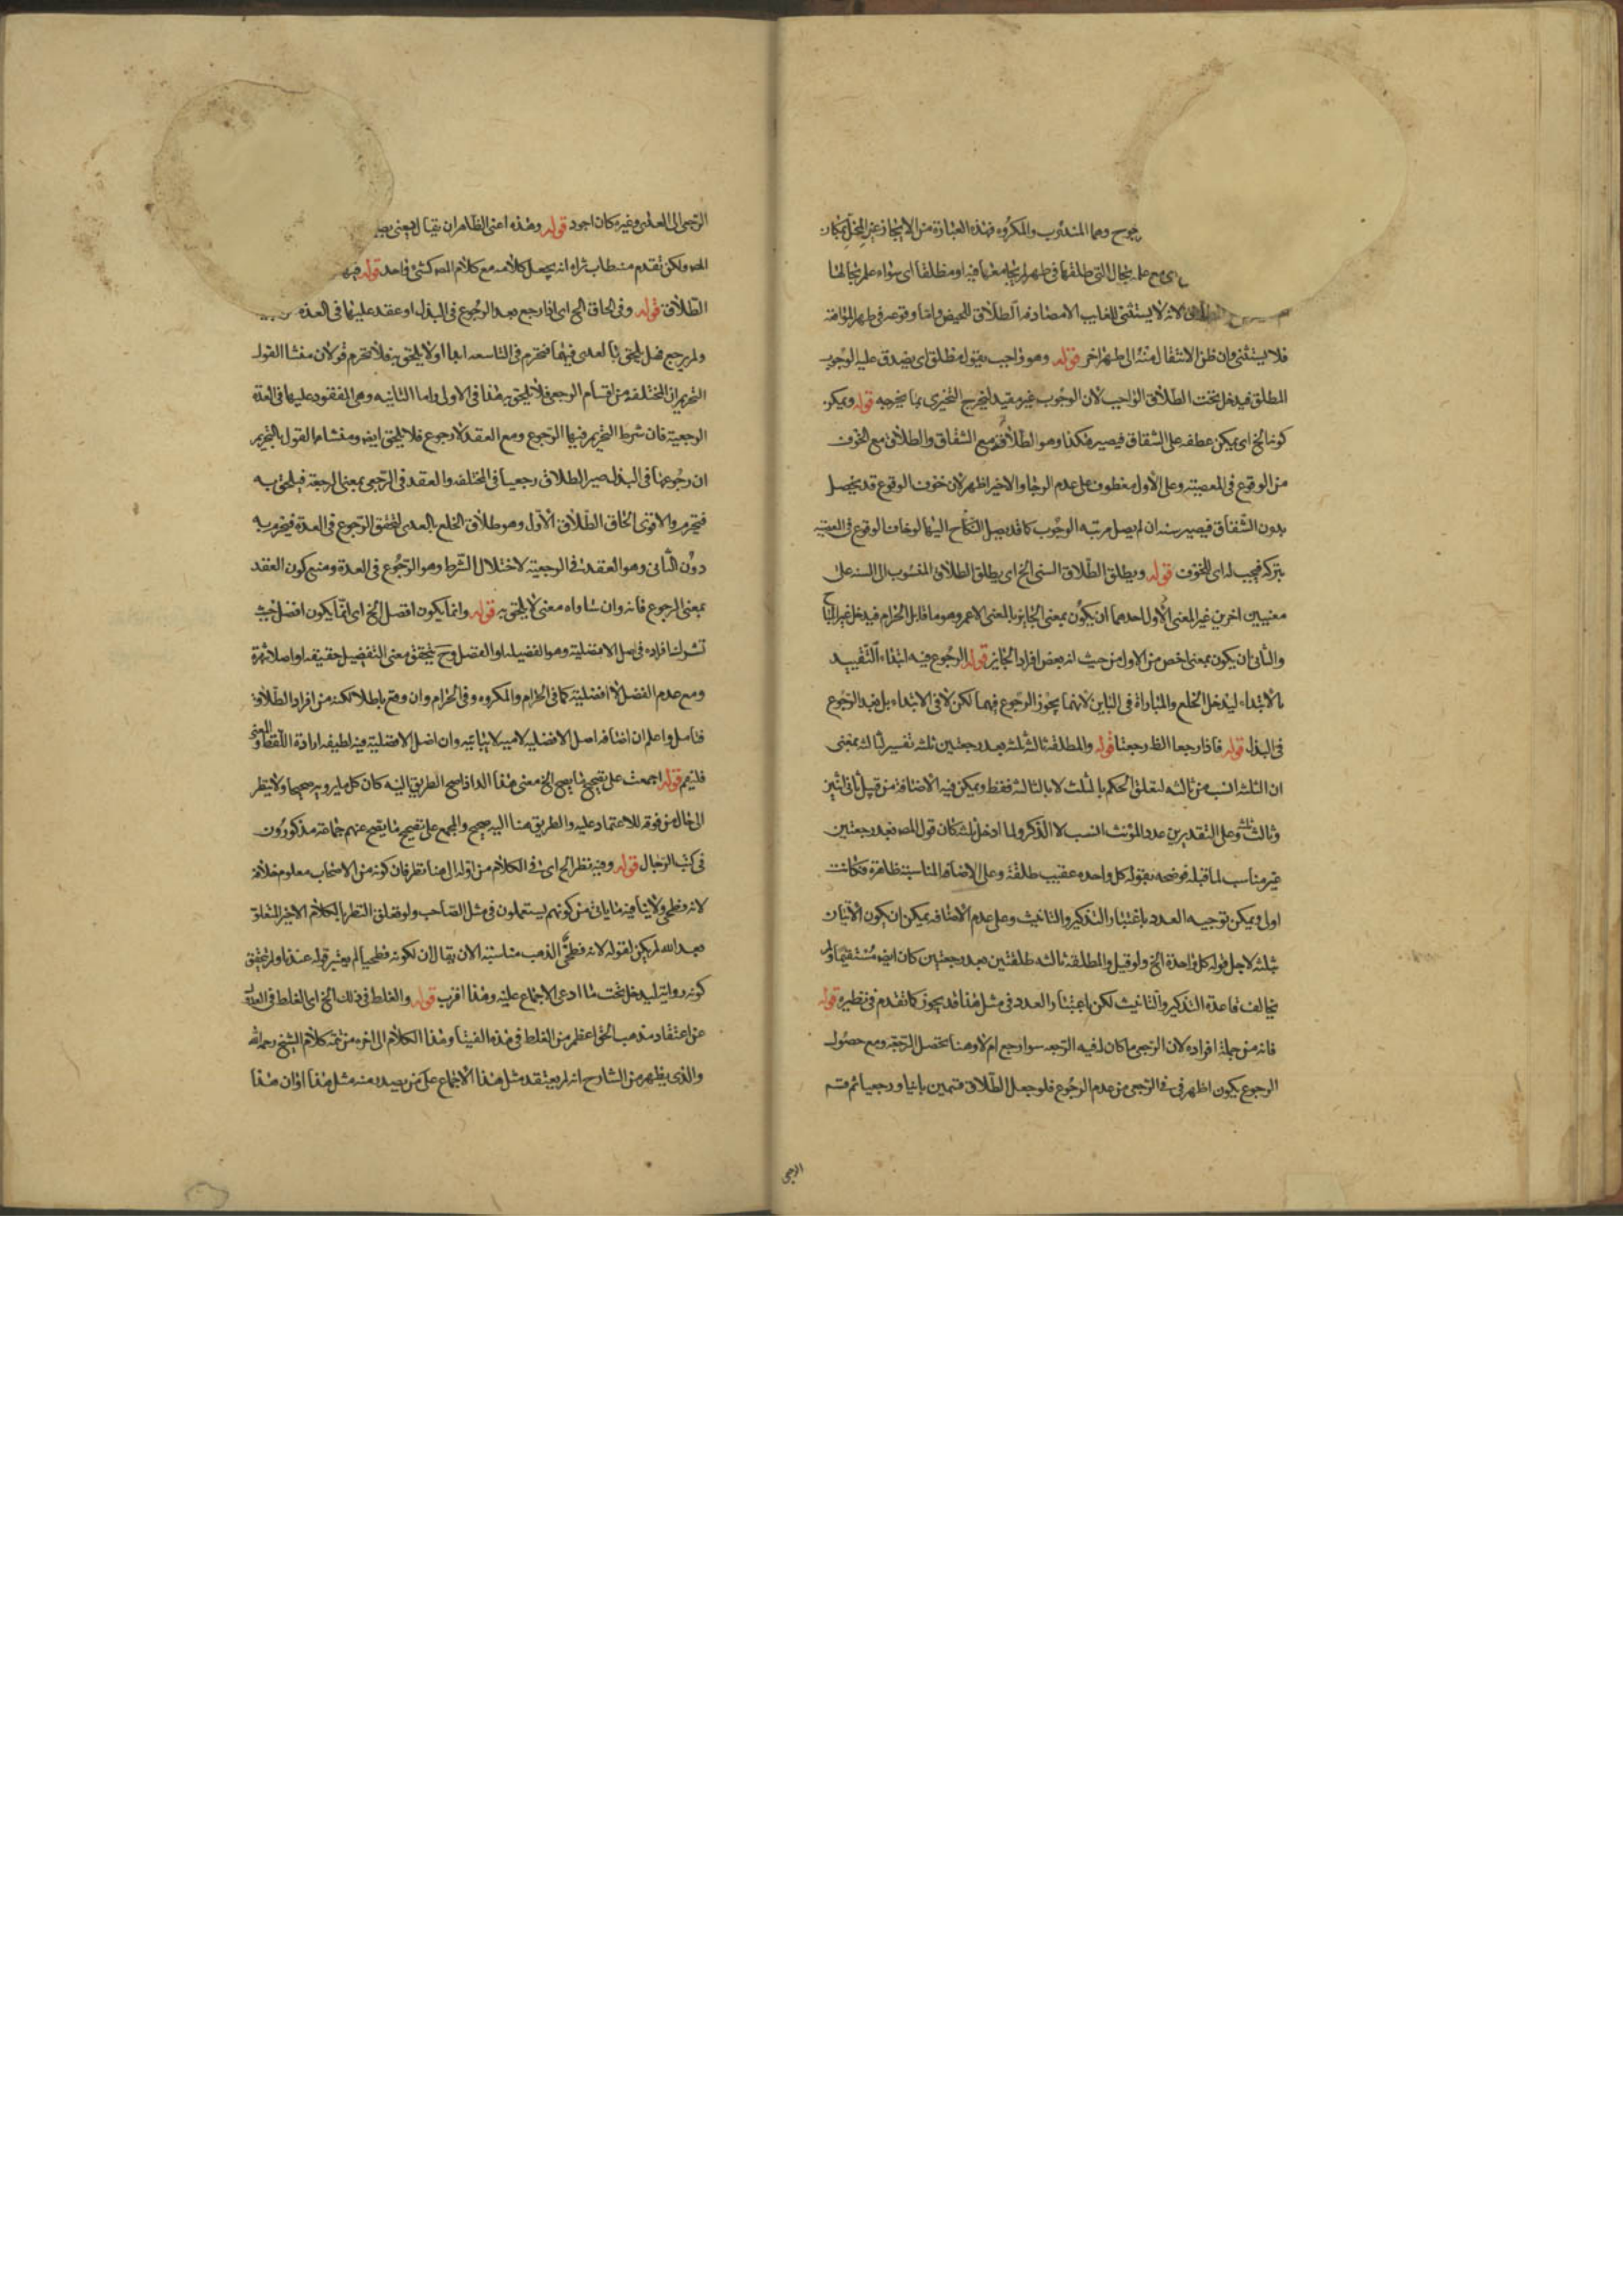 وهما المندوب والمكروه فهذه العبارة من الايجاز غير المخل بمكان
بحال التي طلقها في طهر لم يجامعها فيه او مطلقا اى سواء علم بحالها
لانه لا يستثنى للغايب الا مصادفة الطلاق للحيض واما وقوعه في طهر المواقعة
فلا يستثنى وان ظن الانتقال منه الى طهر اخر قوله وهو واجب بقول مطلق اى يصدق عليه الوجوب
المطلق فيدخل تحت الطلاق الواجب لان الوجوب غير مقيد ليخرج التخيرى بما يخرجه قوله ويمكن
كونه الخ اى يمكن عطفه على الشقاق فيصير هكذا وهو الطلاق مع الشقاق والطلاق مع الخوف
من الوقوع في المعصية وعلى الاول معطوف على عدم الرجا والاخير اظهر لان خوف الوقوع قد يحصل
بدون الشقاق فيصير سنه ان لم يصل مرتبه الوجوب كما قد يصل النكاح اليها لو خاف الوقوع في المعصية
بتركه فيجب له اى للخوف قوله ويطلق الطلاق السنى الخ اى يطلق الطلاق المنسوب الى السنه على
معنيين اخرين غير المعنى الاول احدهما ان يكون بمعنى الجايز بالمعنى الاعم وهو ما قابل الحرام فيدخل غير المباح
والثانى ان يكون بمعنى اخص من الاول من حيث انه بعض افراد الجايز قوله الرجوع فيه ابتداء التقييد
بالابتداء ليدخل الخلع والمباراة في الباين لانهما يجوز الرجوع فيهما لكن لا في الابتداء بل بعد الرجوع
في البذل قوله فاذا رجعا الظ رجعتا قوله والمطلقة ثالثه ثلثه بعد رجعتين ثلثه تفسير لثالثه بمعنى
ان الثلثه انسب من ثالثه لتعلق الحكم بالثلث لا بالثالثه فقط ويمكن فيه الاضافة من قبيل ثانى اثنين
وثالث ثلثه وعلى التقديرين عدد المؤنث انسب لا الذكر ولما ادخل ثلثه كان قول المصـ بعد رجعتين
غير مناسب لما قبله فوضحه بقوله كل واحده عقيب طلقه وعلى الاضافه المناسبة ظاهرة فكانت
اولى ويمكن توجيه العدد باعتبار التذكير والتانيث وعلى عدم الاضافه يمكن ان يكون الاتيان
بثلثه لاجل قوله كل واحدة الخ ولو قيل والمطلقة ثالثه طلقتين بعد رجعتين كان ايضا مستقيما ولم
يخالف قاعدة التذكير والتانيث لكن باعتبار العدد في مثل هذا قد يجوز كما تقدم في نظيره قوله
فانه من جملة افراده لان الرجعى ما كان له فيه الرجعه سوا رجع ام لا وهنا تحصل الرجعة ومع حصول
الرجوع يكون اظهر في الرجعى من عدم الرجوع فلو جعل الطلاق قسمين باينا ورجعيا ثم قسم
الرجعى
الرجعى الى العدى وغيره كان اجود قوله وهذه اعنى الظاهر ان يقال
المصـ ولكن تقدم منه طاب ثراه انه يجعل كلامه مع كلام المصـ كشئ واحد قوله
الطلاق قوله وفى الحاق الخ اى اذا رجع بعد الرجوع في البذل او عقد عليها في العدة
ولم يرجع فهل يلحق بالعدى فيهما فتحرم في التاسعه ابدا او لا يلحق به فلا تحرم قولان منشا القول
التحرير ان المختلفة من اقسام الرجعى فلا يلحق به هذا في الاولى واما الثانيه وهى المعقود عليها في العدة
الرجعية فان شرط التحريم فيها الرجوع ومع العقد لا رجوع فلا يلحق ايضا ومنشاء القول بالتحريم
ان رجوعها في البذل صير الطلاق رجعيا في المختلفه والعقد في الرجعى بمعنى الرجعة فيلحق به
فتحرم والاقوى الحاق الطلاق الاول وهو طلاق الخلع بالعدى لتحقق الرجوع في العدة فيحرم به
دون الثانى وهو العقد في الرجعية لاختلال الشرط وهو الرجوع في العدة ومنع كون العقد
بمعنى الرجوع فانه وان ساواه معنى لا يلحق به قوله وانما يكون افضل الخ اى انما يكون افضل حيث
تشترك افراده في اصل الافضلية وهو الفضيله او الفضل وح يتحقق معنى التفضيل حقيقه او اصلا
ومع عدم الفضل لا افضلية كما في الحرام والمكروه وفى الحرام وان وقع باطلا لكنه من افراد الطلاق
فتامل واعلم ان اضافه اصل الافضليه لاميه لا بيانيه وان اصل الافضلية فيه لطيفه ارادة اللفظ والمعنى
فليتم قوله اجمعت على تصحيح ما يصح الخ معنى هذا انه اذا صح الطريق اليه كان كل ما يرويه صحيحا ولا ينظر
الى حال من فوقه للاعتماد عليه والطريق هنا اليه صحيح والمجمع على تصحيح ما يصح عنهم جماعة مذكورون
في كتب الرجال قوله وفيه نظر الخ اى في الكلام من اوله الى هنا نظر فان كونه من الاصحاب معلوم خلافه
لانه فطحى ولا ينافيه ما ياتى من كونهم يستعملون في مثل الصاحب ولو تعلق النظر بالكلام الاخير المتعلق
بعبد الله لم يكن لقوله لانه فطحى المذهب مناسبة الا ان يقال ان لكونه فطحيا لم يعتبر قوله عندنا ولم يتحقق
كونه رواية ليدخل تحت ما ادعى الاجماع عليه وهذا اقرب قوله والغلط في ذلك الخ اى الغلط في العدول
عن اعتقاد مذهب الحق اعظم من الغلط في هذه الفتيا وهذا الكلام الى اخره من تتمة كلام الشيخ رحمه الله
والذى يظهر من الشارح انه لم يعتقد مثل هذا الاجماع على من يصدر منه مثل هذا اذ ان هذا